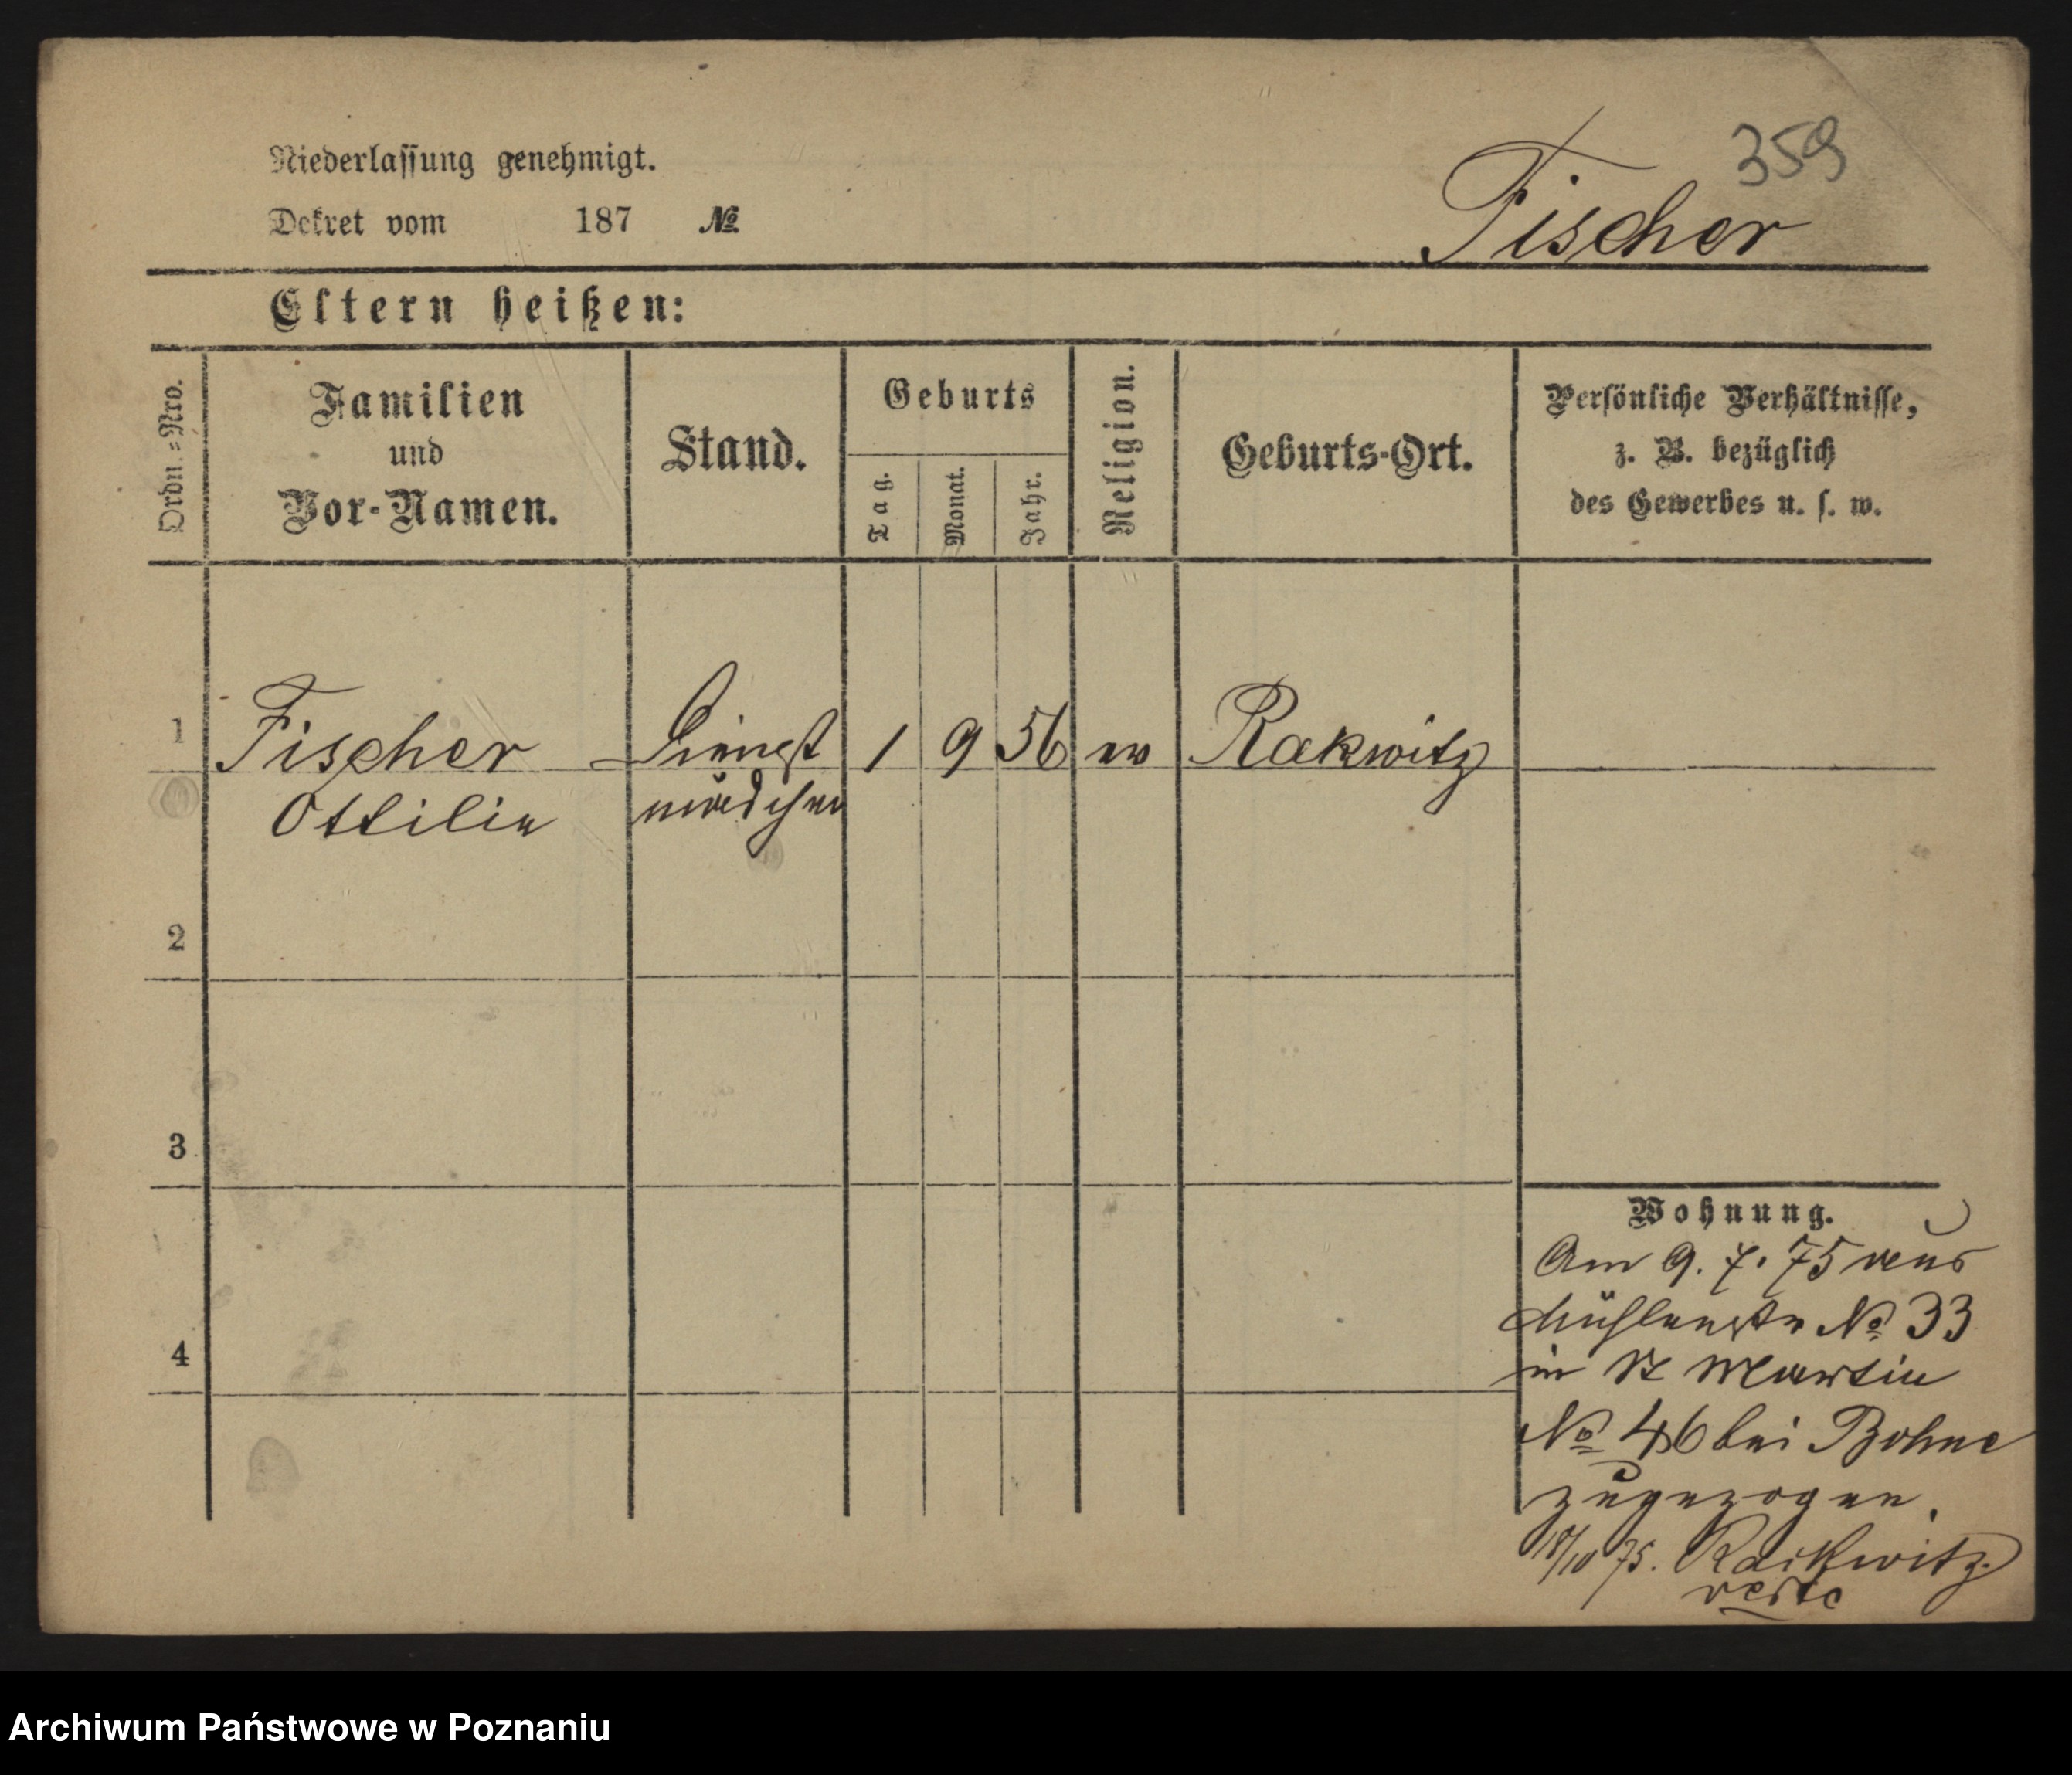 359
Niederlassung genehmigt.
Dekret vom 187 №
Fischer
Eltern heißen:
Ordn.=Nro.
Familien
und
Vor-Namen.
Stand.
Geburts
Tag.
Monat.
Jahr.
Religion.
Geburts-Ort.
Persönliche Verhältnisse,
z. B. bezüglich
des Gewerbes u. s. w.
1 Fischer Dienst 1 9 56 ev Rakwitz
Ottilie mädchen
2
3
4
Wohnung.
Am 9. 7. 75 aus
Mühlenstr № 33
in St Martin
№ 46 bei Bohne
zugezogen.
18/10 75. Rackwitz.
verte
Archiwum Państwowe w Poznaniu